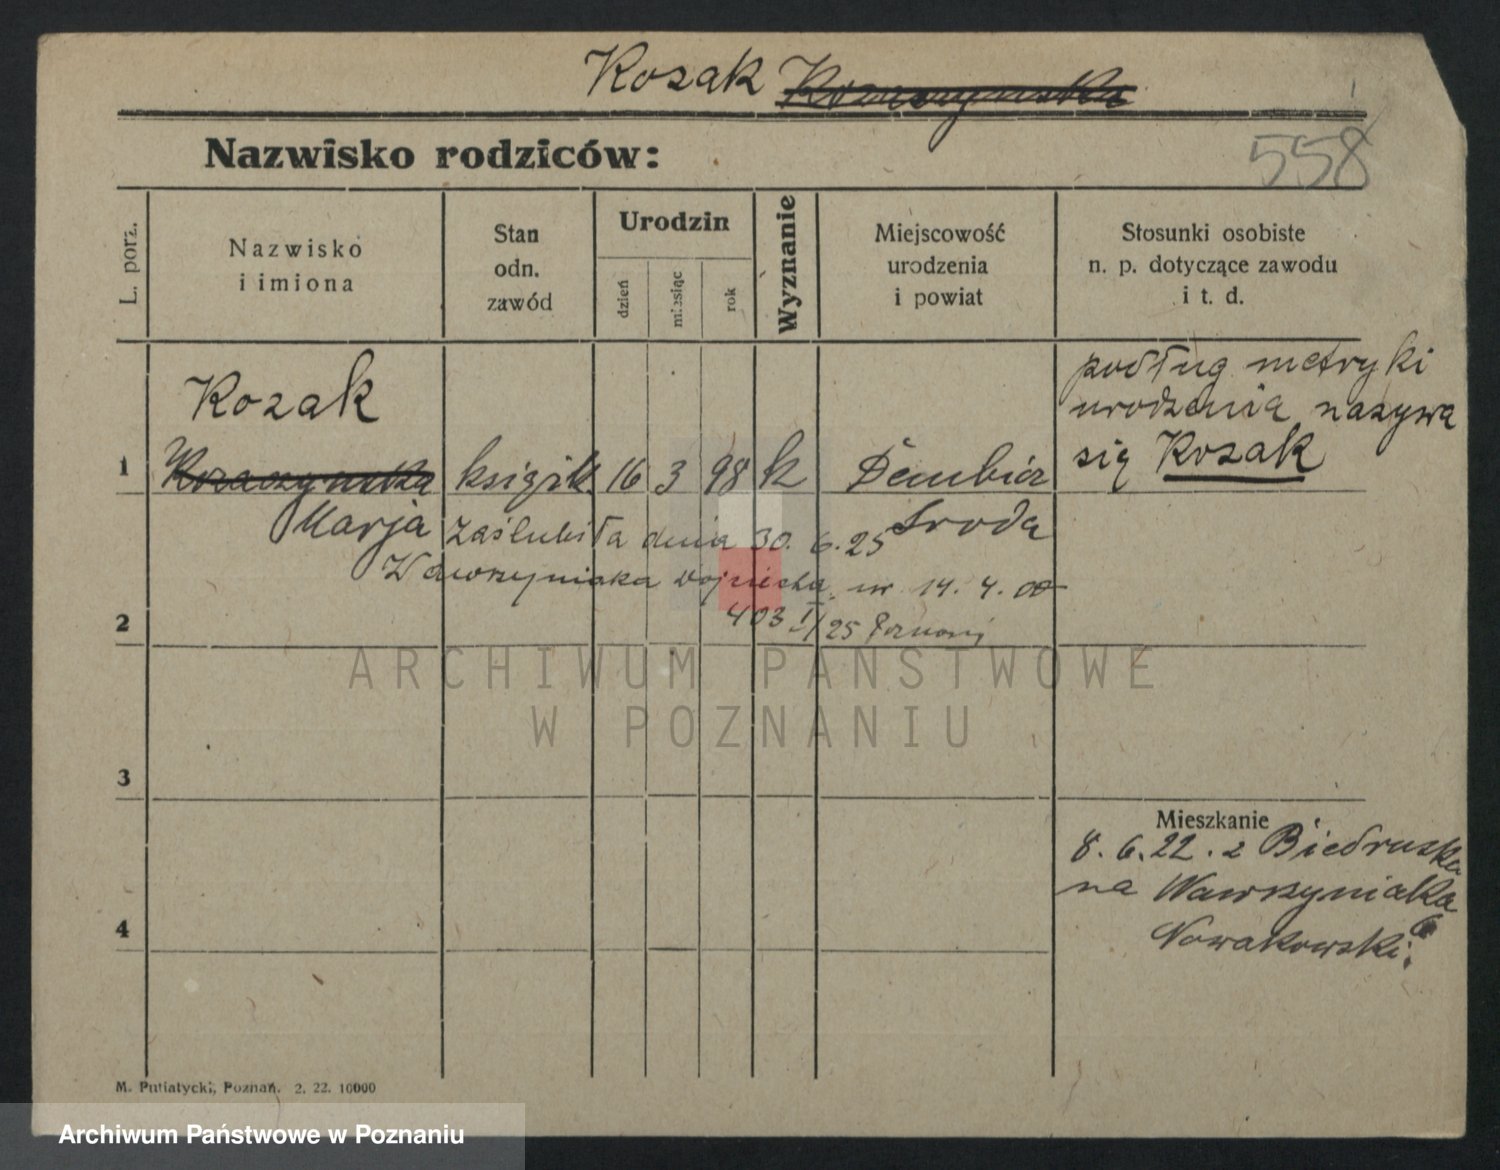 Kozak Kozaczynska
Nazwisko rodziców:
558
L. porz.
Nazwisko
i imiona
Stan
odn.
zawód
Urodzin
dzień
miesiąc
rok
Wyznanie
Miejscowość
urodzenia
i powiat
Stosunki osobiste
n. p. dotyczące zawodu
i t. d.
podług metryki
urodzenia nazywa
się Kozak
Kozak
1
Kozaczynska
16 3 98 k
Marja
Zaślubiła dnia 30. 6. 25
Środa
Wawrzyniaka Wojciecha ur 14. 4. 00
403 II/25 Poznań
2
3
4
Mieszkanie
8. 6. 22. z Biedruska
na Wawrzyniaka
6
Nowakowski.
M. Putiatycki, Poznań. 2. 22. 10000
ARCHIWUM PAŃSTWOWE
W POZNANIU
Archiwum Państwowe w Poznaniu